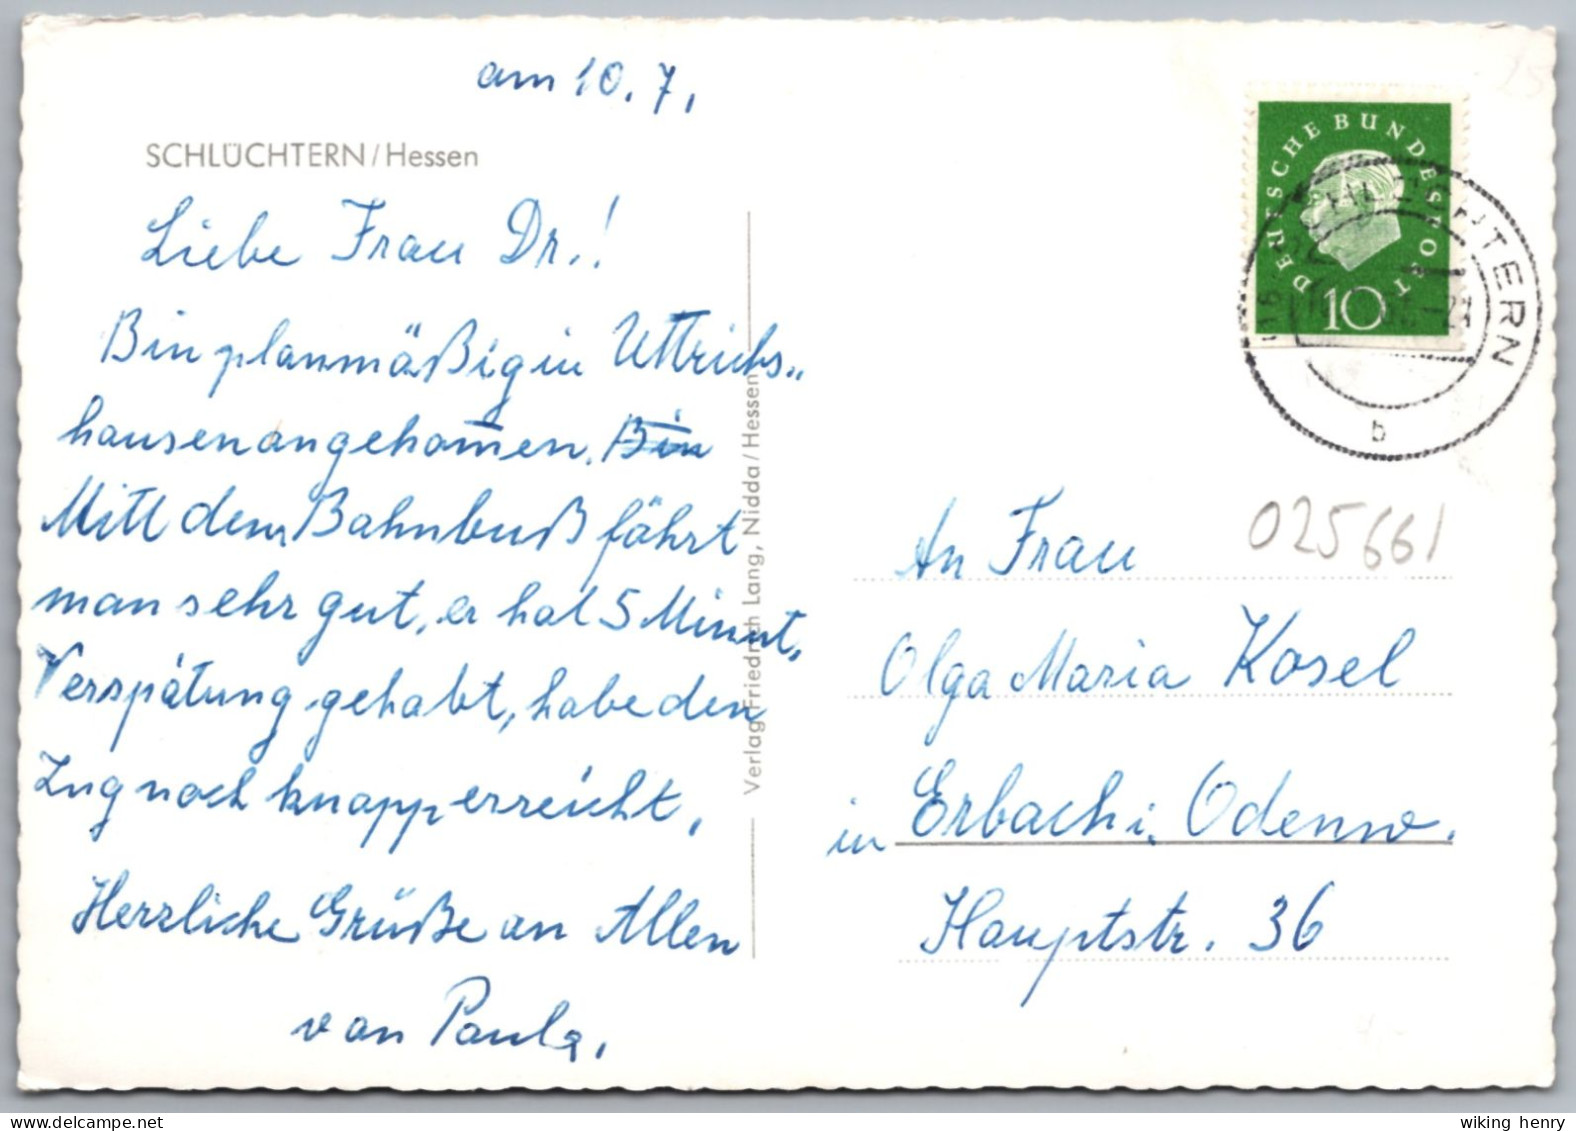 am 10.7.
SCHLÜCHTERN/Hessen
Liebe Frau Dr.!
Bin planmäßig in Uttrichs„
hausen angekom̅en. B̶i̶n̶
Mitt dem Bahnbuß fährt
man sehr gut, er hat 5 Minut.
Verspätung gehabt, habe den
Zug noch knapp erreicht.
Herzliche Grüße an Allen
von Paula.
Verlag Friedrich Lang, Nidda/Hessen
DEUTSCHE BUNDESPOST
10
SCHLÜCHTERN
b
025661
An Frau
Olga Maria Kosel
in Erbach i. Odenw.
Hauptstr. 36
wiking henry